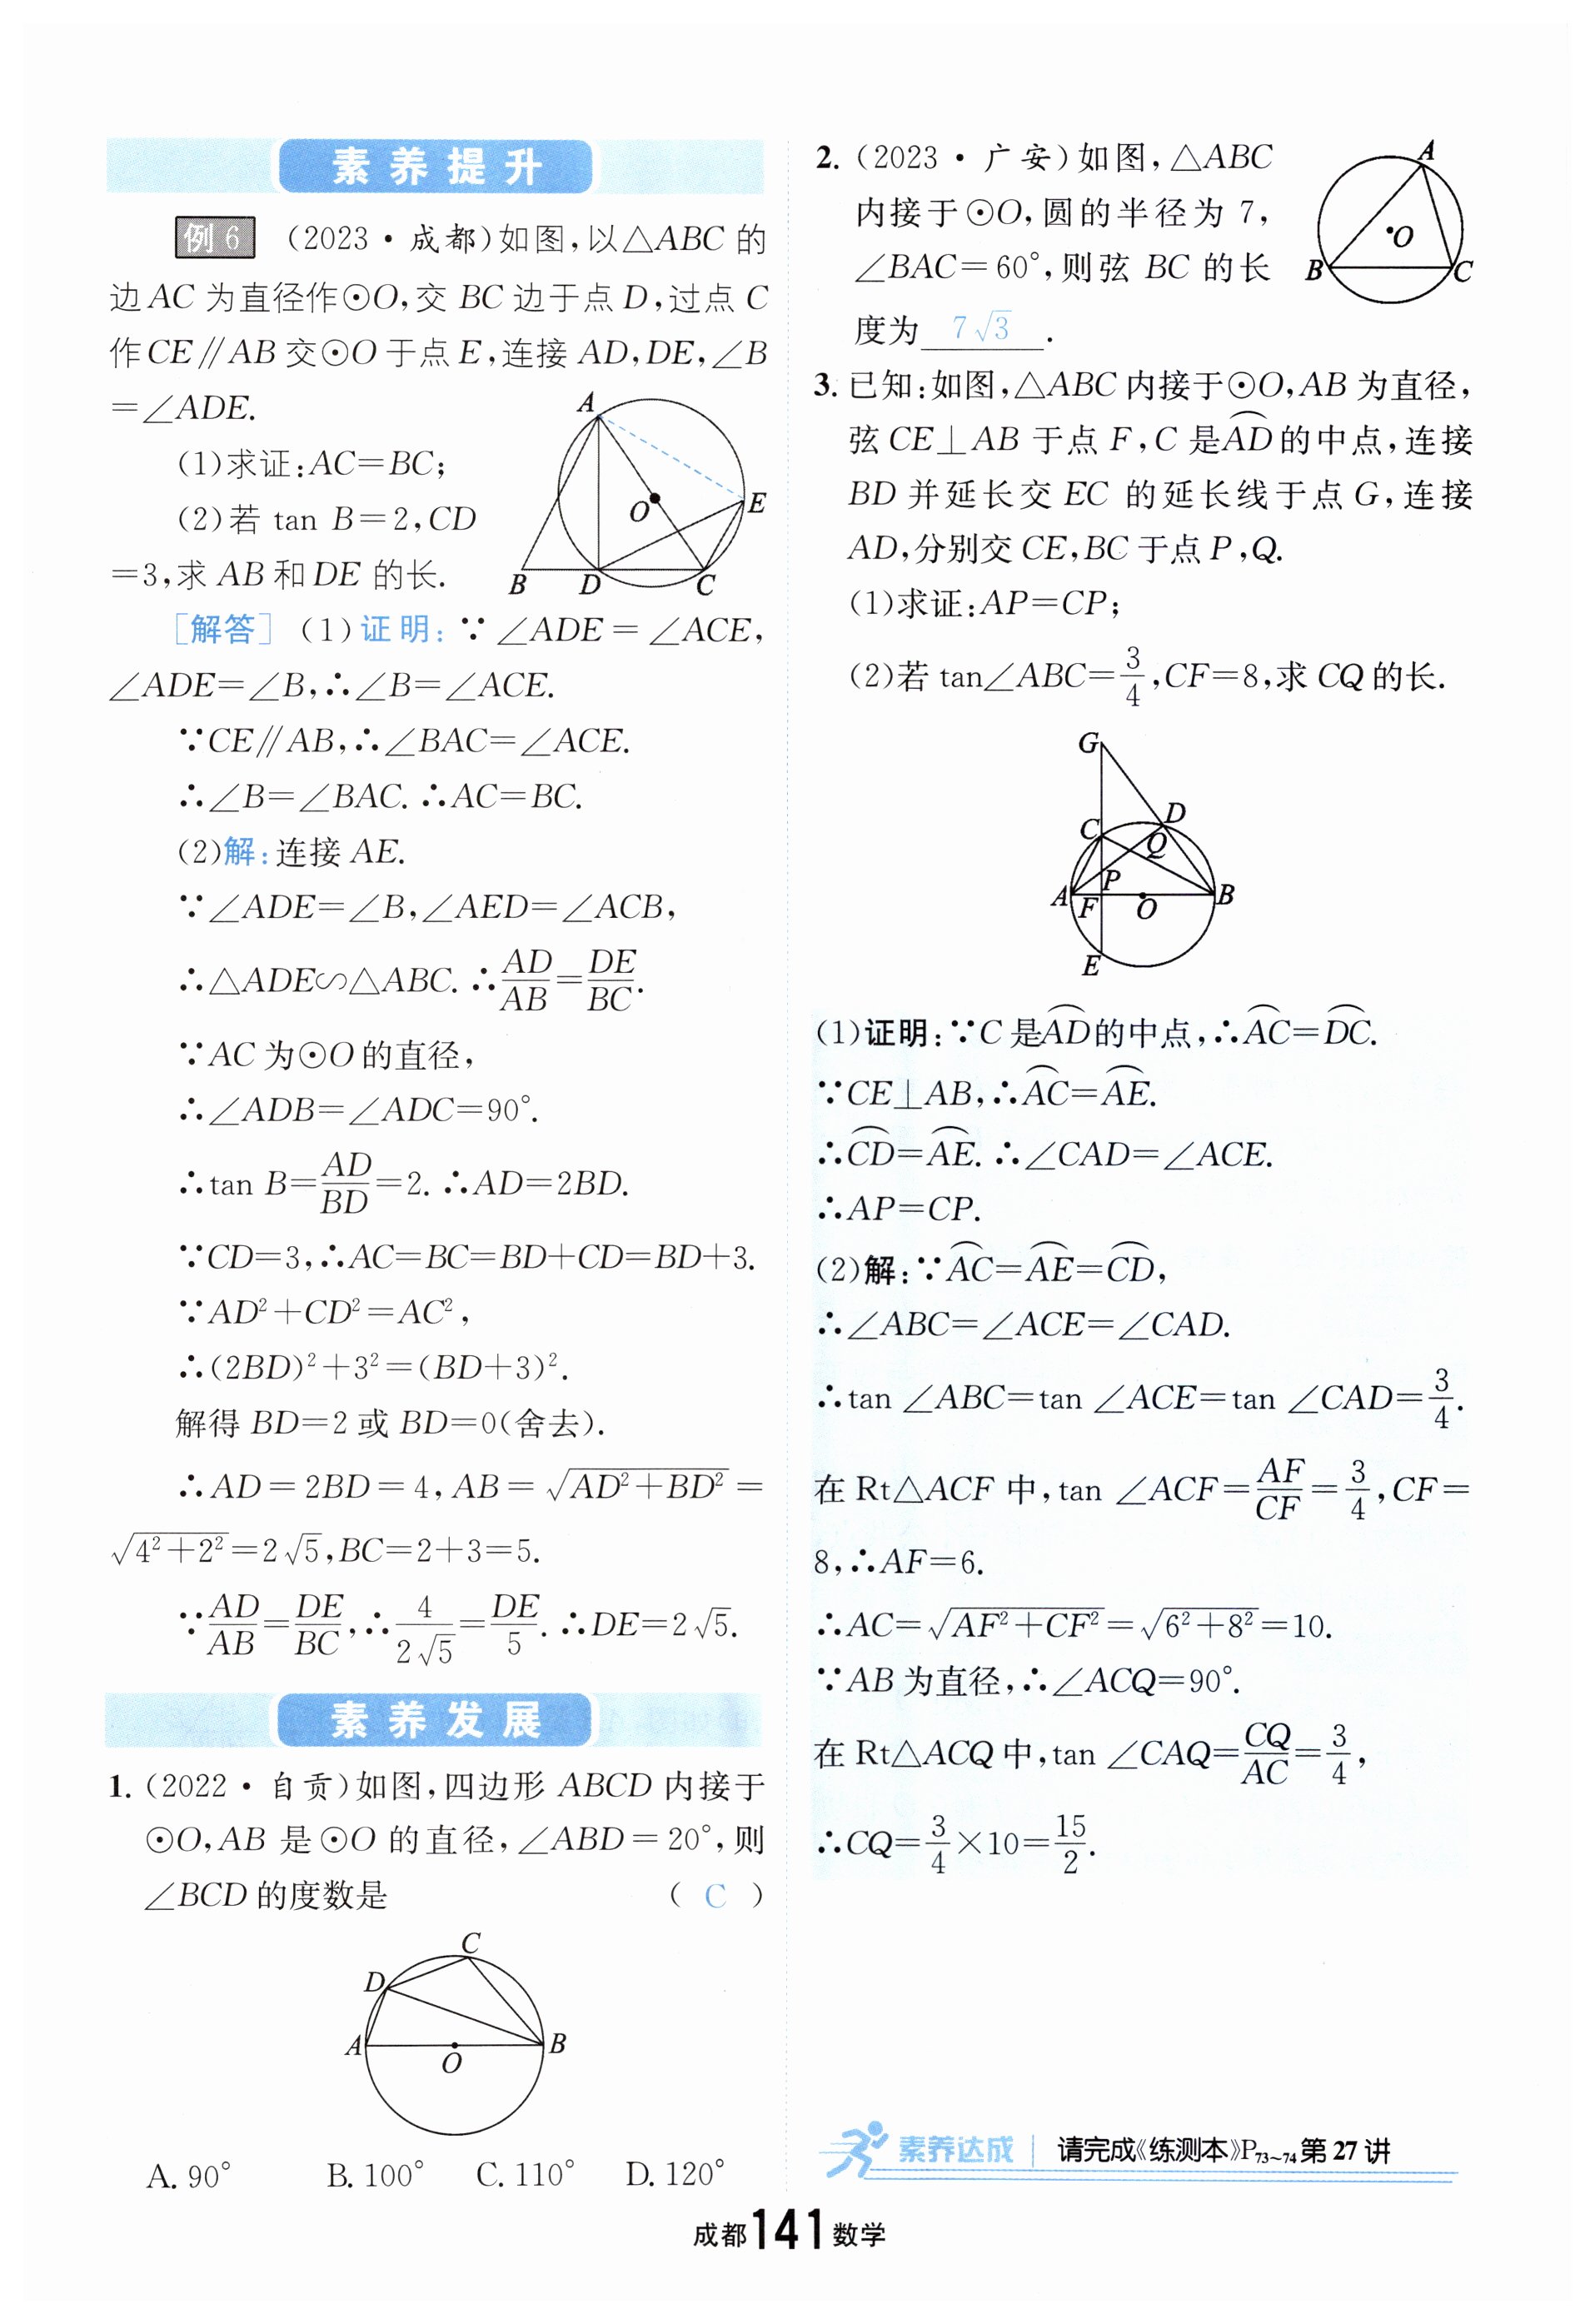 素养提升
例6 (2023·成都)如图,以△ABC的
边AC为直径作⊙O,交BC边于点D,过点C
作CE∥AB交⊙O于点E,连接AD,DE,∠B
=∠ADE.
(1)求证:AC=BC;
(2)若 tan B=2,CD
=3,求AB和DE的长.
A
O
E
B
D
C
[解答] (1)证明:∵∠ADE=∠ACE,
∠ADE=∠B,∴∠B=∠ACE.
∵CE∥AB,∴∠BAC=∠ACE.
∴∠B=∠BAC.∴AC=BC.
(2)解:连接AE.
∵∠ADE=∠B,∠AED=∠ACB,
∴△ADE∽△ABC.∴AD/AB=DE/BC.
∵AC为⊙O的直径,
∴∠ADB=∠ADC=90°.
∴tan B=AD/BD=2.∴AD=2BD.
∵CD=3,∴AC=BC=BD+CD=BD+3.
∵AD²+CD²=AC²,
∴(2BD)²+3²=(BD+3)².
解得BD=2或BD=0(舍去).
∴AD=2BD=4,AB=√(AD²+BD²)=
√(4²+2²)=2√5,BC=2+3=5.
∵AD/AB=DE/BC,∴4/(2√5)=DE/5.∴DE=2√5.
素养发展
1.(2022·自贡)如图,四边形ABCD内接于
⊙O,AB是⊙O的直径,∠ABD=20°,则
∠BCD的度数是 ( C )
C
D
A
O
B
A. 90° B. 100° C. 110° D. 120°
2.(2023·广安)如图,△ABC
内接于⊙O,圆的半径为7,
∠BAC=60°,则弦BC的长
度为 7√3 .
A
O
B
C
3.已知:如图,△ABC内接于⊙O,AB为直径,
弦CE⊥AB于点F,C是⌒AD的中点,连接
BD并延长交EC的延长线于点G,连接
AD,分别交CE,BC于点P,Q.
(1)求证:AP=CP;
(2)若 tan∠ABC=3/4,CF=8,求CQ的长.
G
C
D
Q
P
A
F
O
B
E
(1)证明:∵C是⌒AD的中点,∴⌒AC=⌒DC.
∵CE⊥AB,∴⌒AC=⌒AE.
∴⌒CD=⌒AE.∴∠CAD=∠ACE.
∴AP=CP.
(2)解:∵⌒AC=⌒AE=⌒CD,
∴∠ABC=∠ACE=∠CAD.
∴tan ∠ABC=tan ∠ACE=tan ∠CAD=3/4.
在Rt△ACF中,tan ∠ACF=AF/CF=3/4,CF=
8,∴AF=6.
∴AC=√(AF²+CF²)=√(6²+8²)=10.
∵AB为直径,∴∠ACQ=90°.
在Rt△ACQ中,tan ∠CAQ=CQ/AC=3/4,
∴CQ=3/4×10=15/2.
素养达成 请完成《练测本》P73~74第27讲
成都141数学